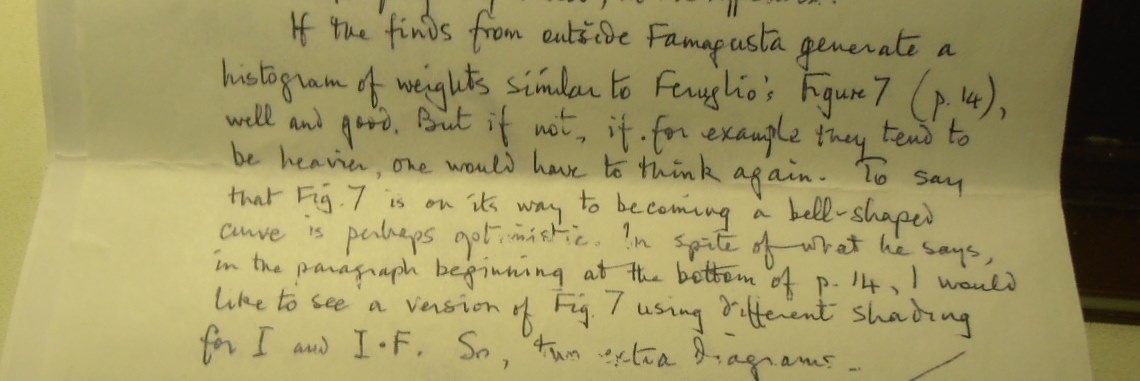 If the finds from outside Famagusta generate a
histogram of weights similar to Feruglio's Figure 7 (p. 14),
well and good. But if not, if for example they tend to
be heavier, one would have to think again. To say
that Fig. 7 is on its way to becoming a bell-shaped
curve is perhaps optimistic. In spite of what he says,
in the paragraph beginning at the bottom of p. 14, I would
like to see a version of Fig. 7 using different shading
for I and I·F. So, two extra diagrams.